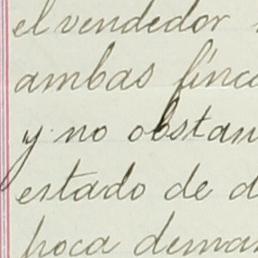 el vendedor
ambas finc
y no obstan
estado de d
poca deman